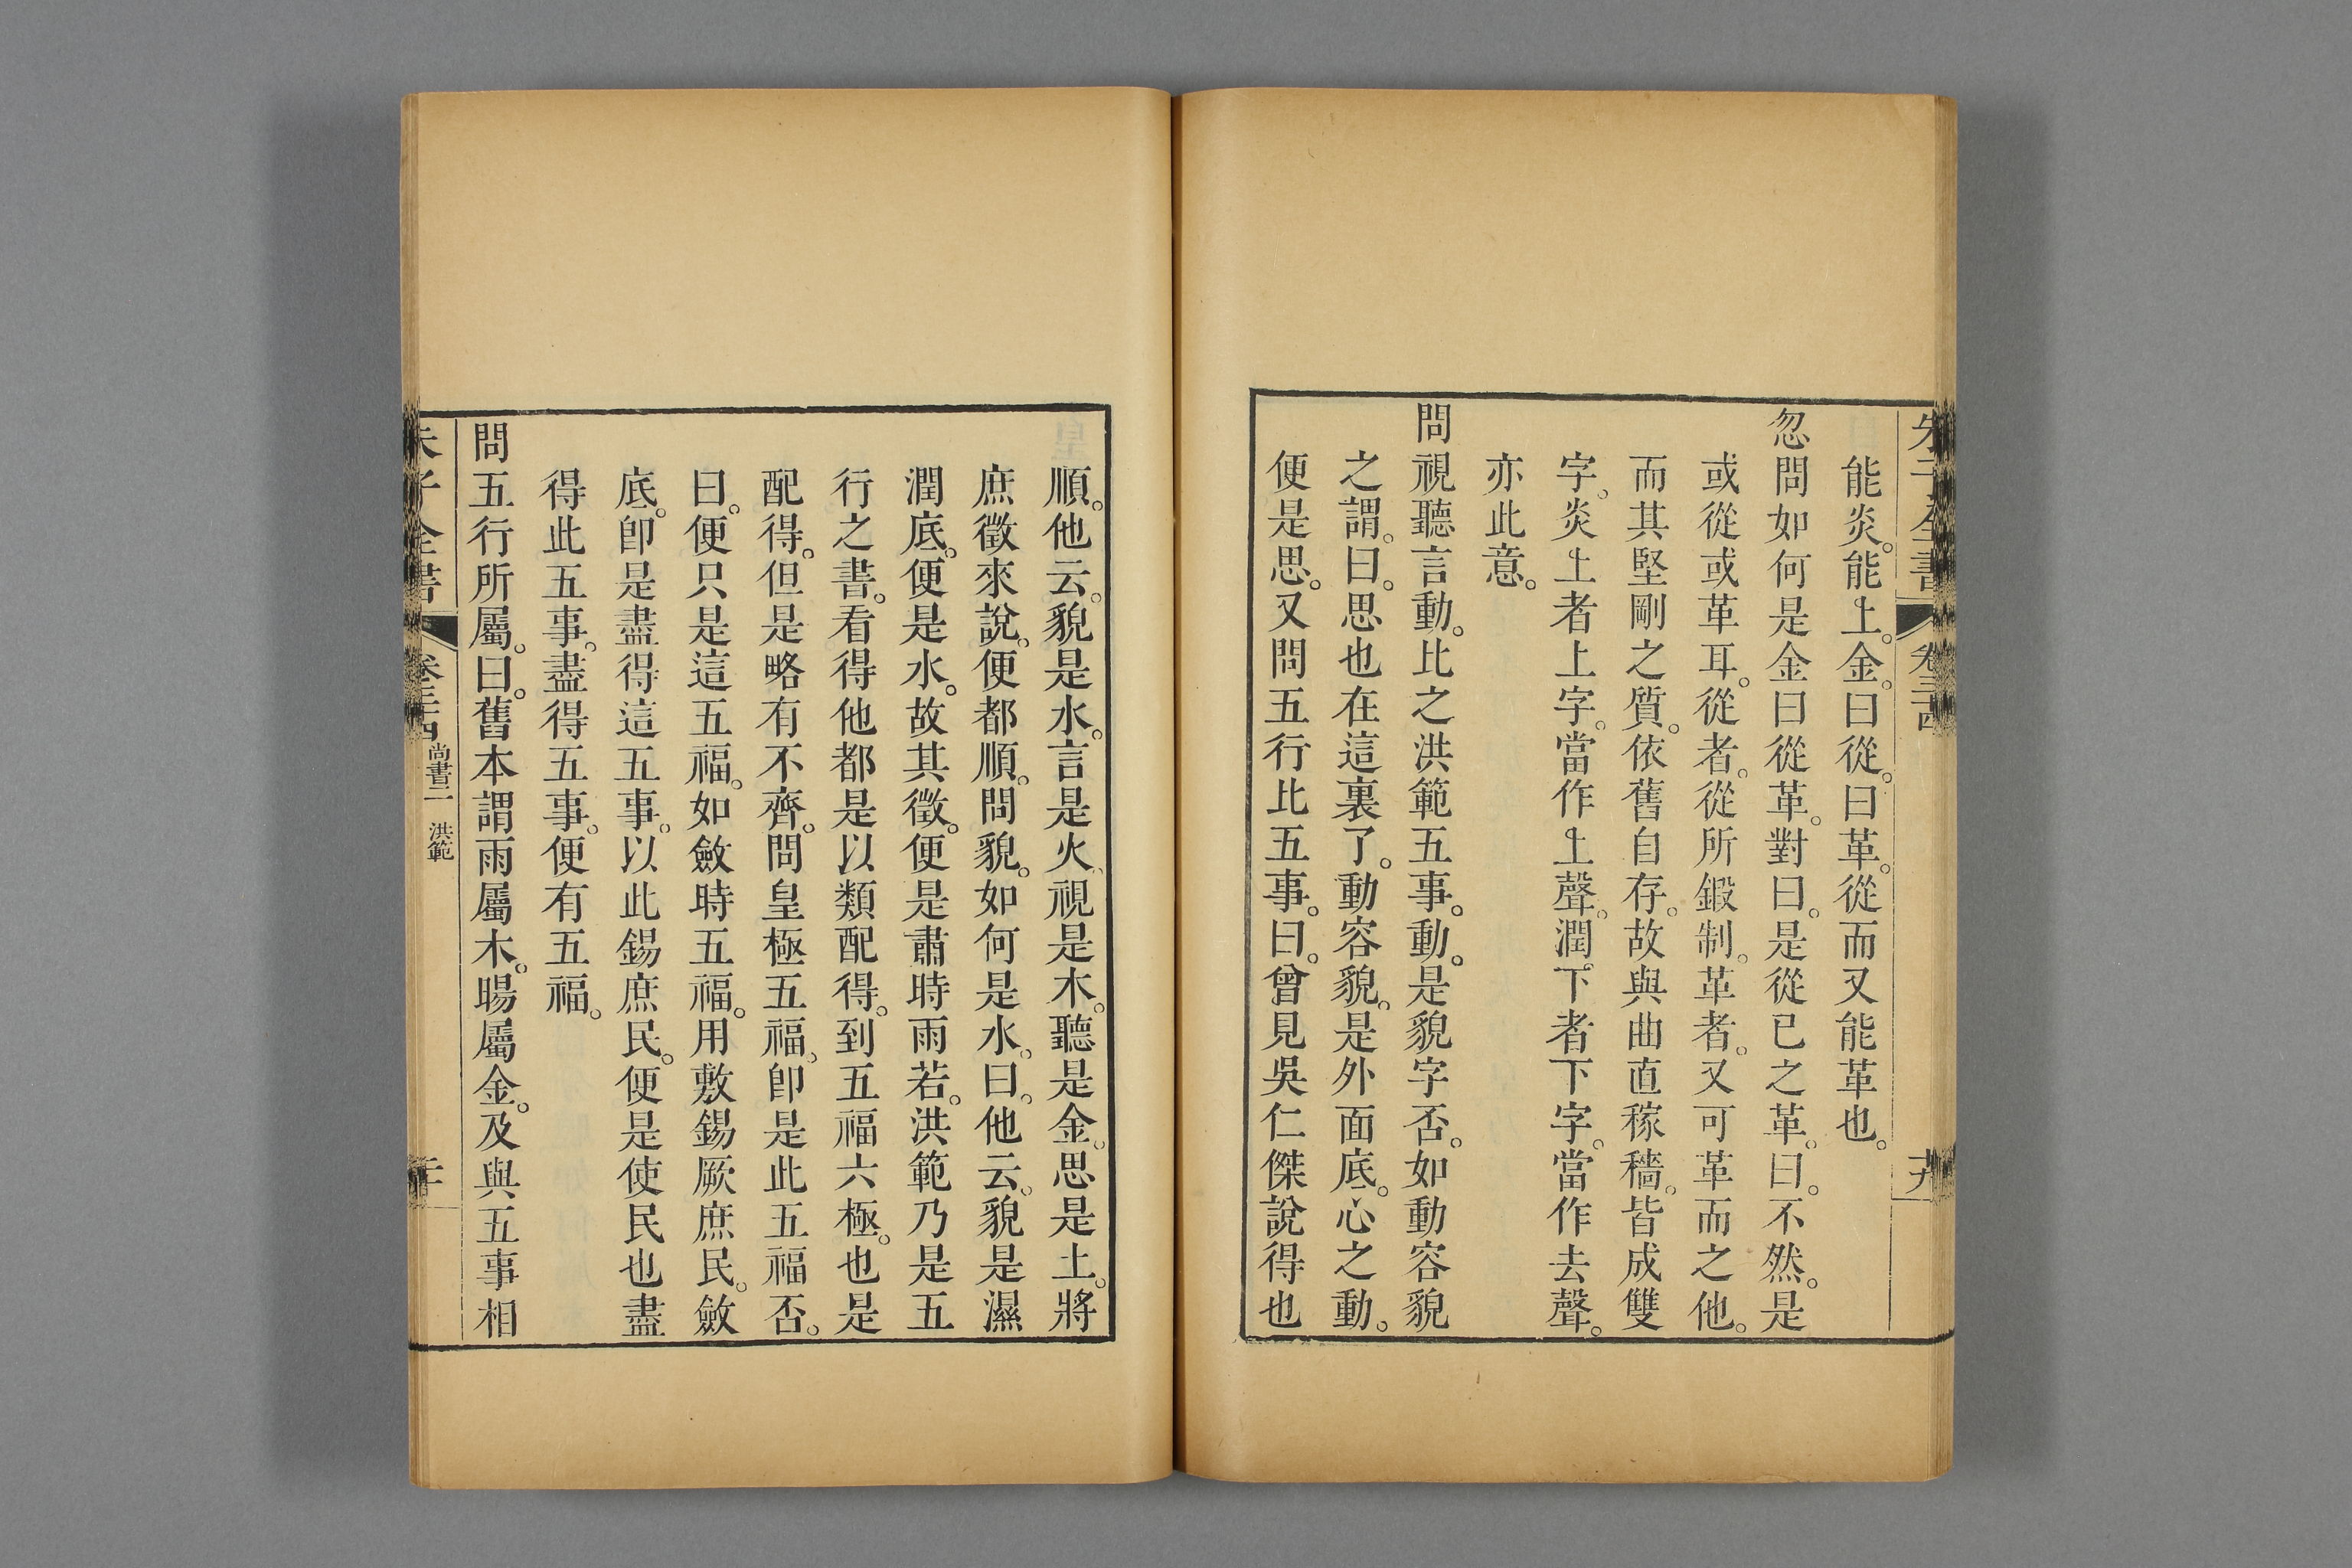 能炎。能上。金。曰從。曰革。從而又能革也。
忽問如何是金曰從革。對曰。是從已之革。曰。不然。是
或從或革耳。從者。從所鍛制。革者。又可革而之他。
而其堅剛之質。依舊自存。故與曲直稼穡。皆成雙
字。炎上者上字。當作上聲。潤下者下字。當作去聲。
亦此意。
問視聽言動。比之洪範五事。動。是貌字否。如動容貌
之謂。曰。思也在這裏了。動容貌。是外面底。心之動。
便是思。又問五行比五事。曰。曾見吳仁傑說得也
順。他云。貌是水。言是火、視是木。聽是金。思是土。將
庶徵來說。便都順。問貌。如何是水。曰。他云。貌是濕
潤底。便是水。故其徵。便是肅時雨若。洪範乃是五
行之書。看得他都是以類配得。到五福六極。也是
配得。但是略有不齊。問皇極五福。卽是此五福否。
曰。便只是這五福。如斂時五福。用敷錫厥庶民。斂
底。卽是盡得這五事。以此錫庶民。便是使民也盡
得此五事。盡得五事。便有五福。
問五行所屬。曰。舊本謂雨屬木。暘屬金。及與五事相
尚書二 洪範